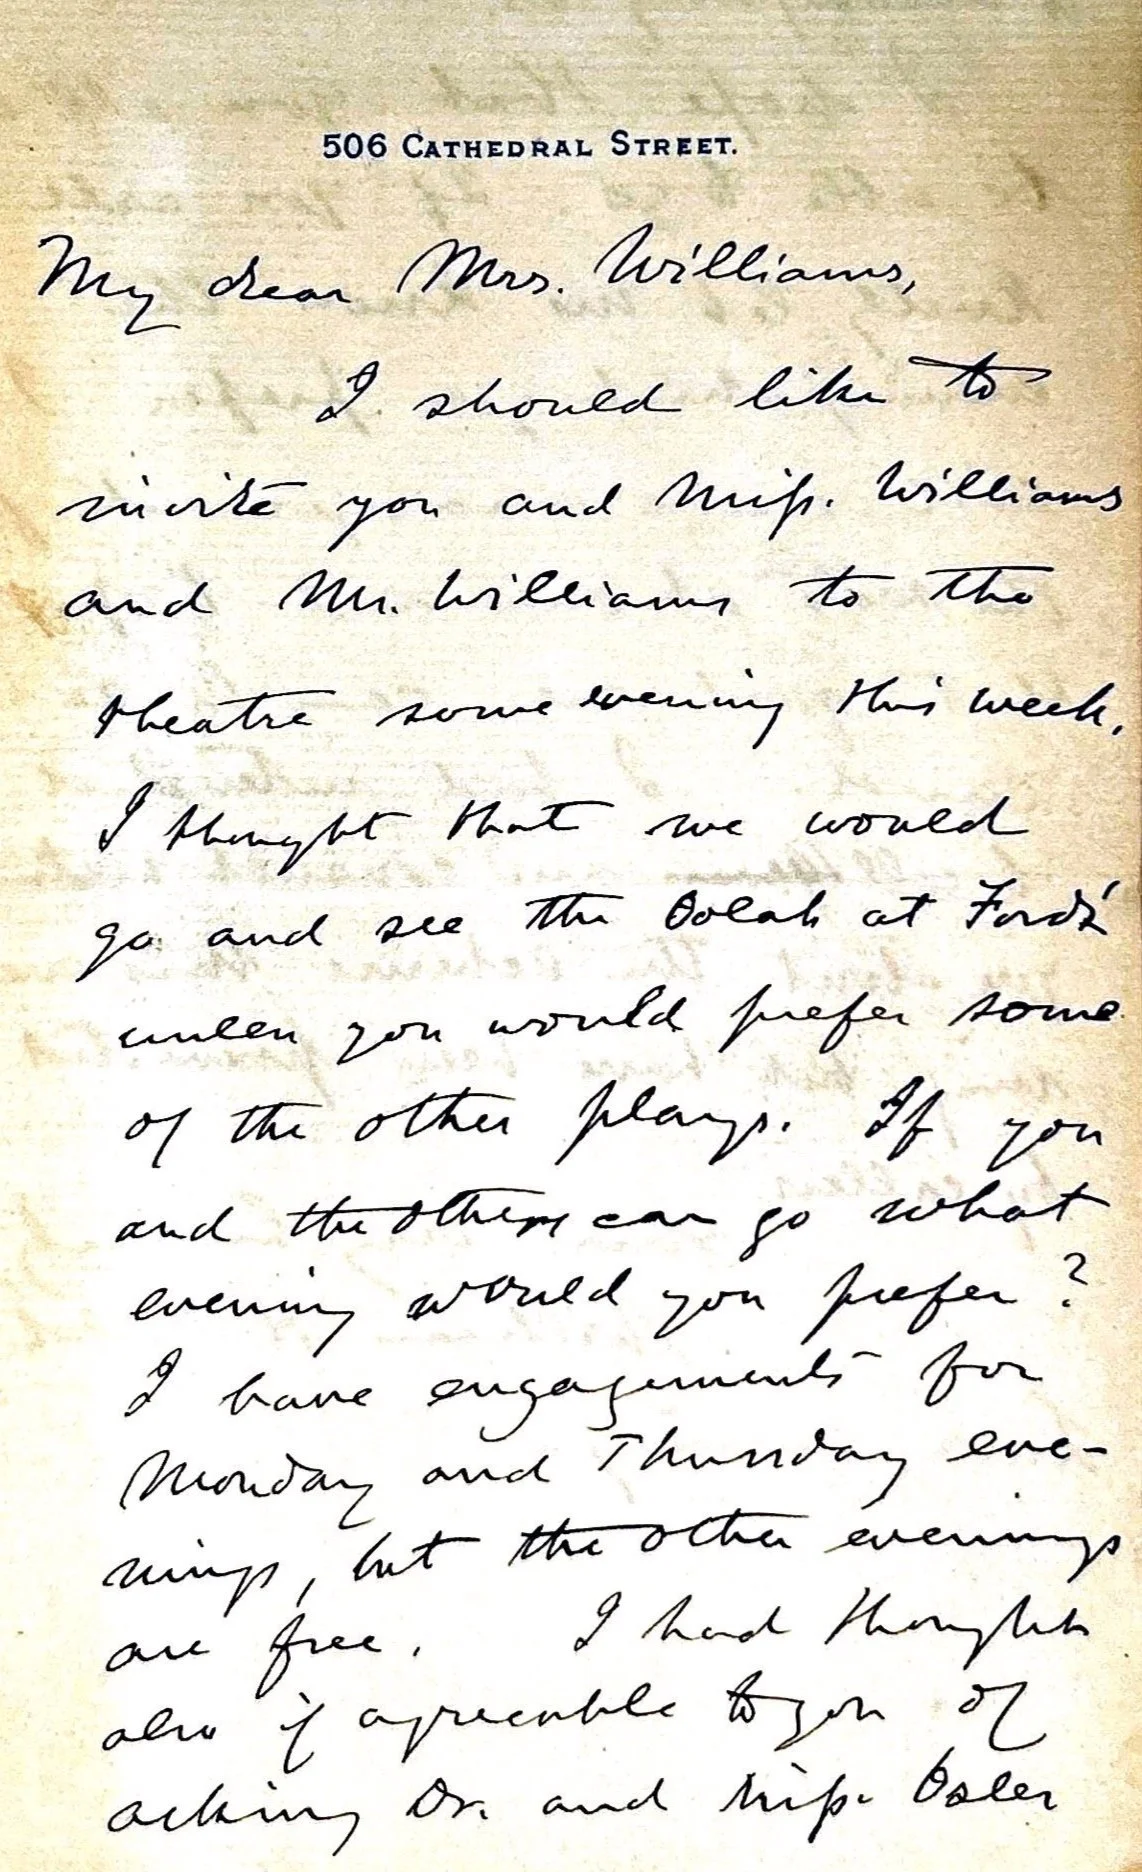 506 CATHEDRAL STREET.
My dear Mrs. Williams,
I should like to
invite you and Miss. Williams
and Mr. Williams to the
theatre some evening this week.
I thought that we would
go and see the Oolah at Ford's
unless you would prefer some
of the other plays. If you
and the others can go what
evening would you prefer?
I have engagements for
Monday and Thursday eve-
nings, but the other evenings
are free. I had thought
also if agreeable to you of
asking Dr. and Miss. Osler